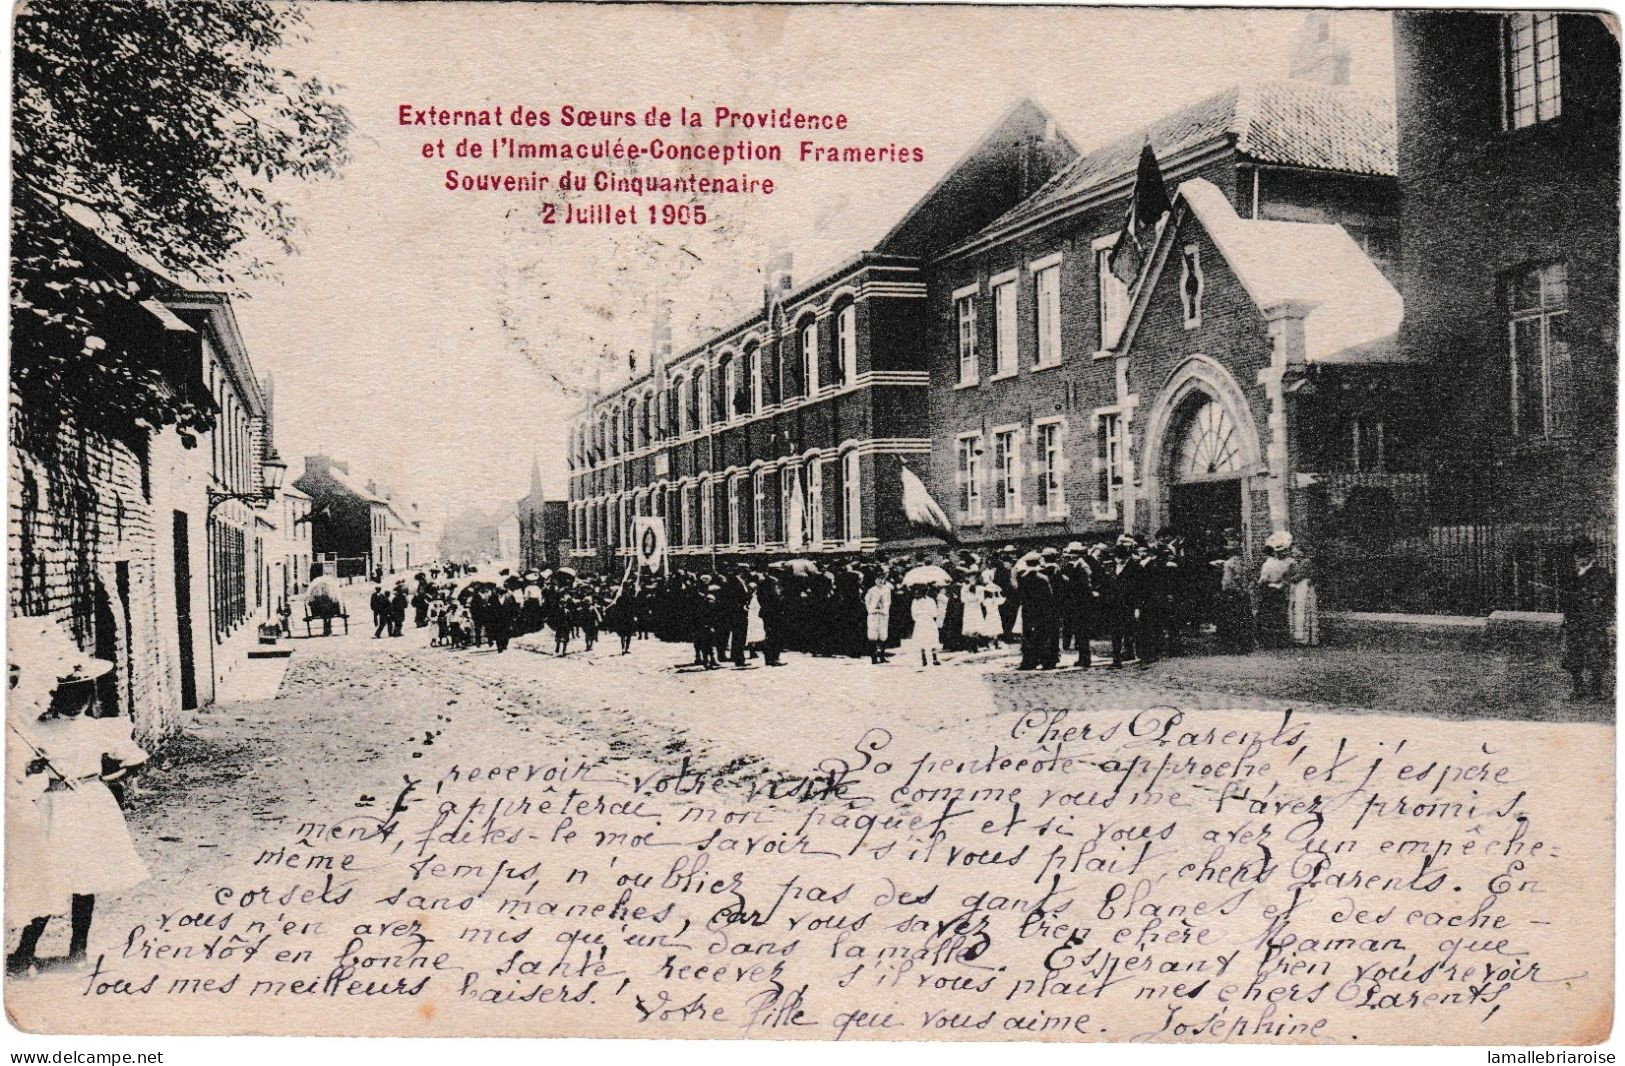 Externat des Sœurs de la Providence
et de l'Immaculée-Conception Frameries
Souvenir du Cinquantenaire
2 Juillet 1905
Chers Parents,
La pentecôte approche, et j'espère
recevoir votre visite comme vous me l'avez promis.
J'apprêterai mon paquet et si vous avez un empêche=
ment, faites-le moi savoir s'il vous plait, chers Parents. En
même temps, n'oubliez pas des gants blancs et des cache-
corsets sans manches, car vous savez bien chère Maman que
vous n'en avez mis qu'un dans la malle. Espérant bien vous revoir
bientôt en bonne santé, recevez, s'il vous plait mes chers Parents,
tous mes meilleurs baisers.
Votre fille qui vous aime. Joséphine.
lamallebriaroise
© www.delcampe.net